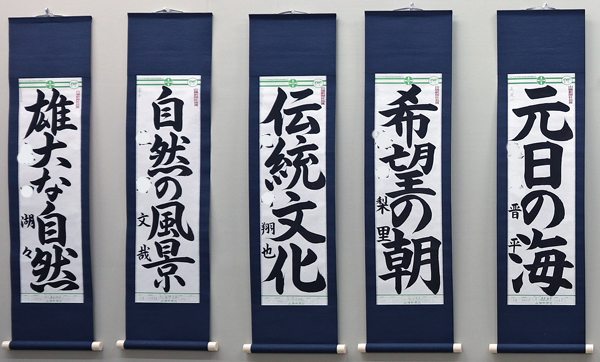 元日の海
晋平
希望の朝
梨里
伝統文化
翔也
自然の風景
文哉
雄大な自然
湖々